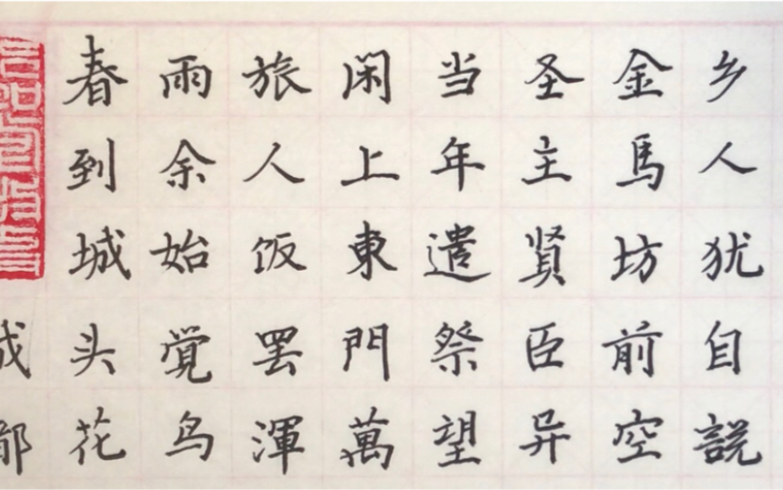 成都
春到城头花
雨余始覚鸟
旅人饭罢渾
闲上東門萬
当年遣祭望
圣主贤臣异
金馬坊前空
乡人犹自說